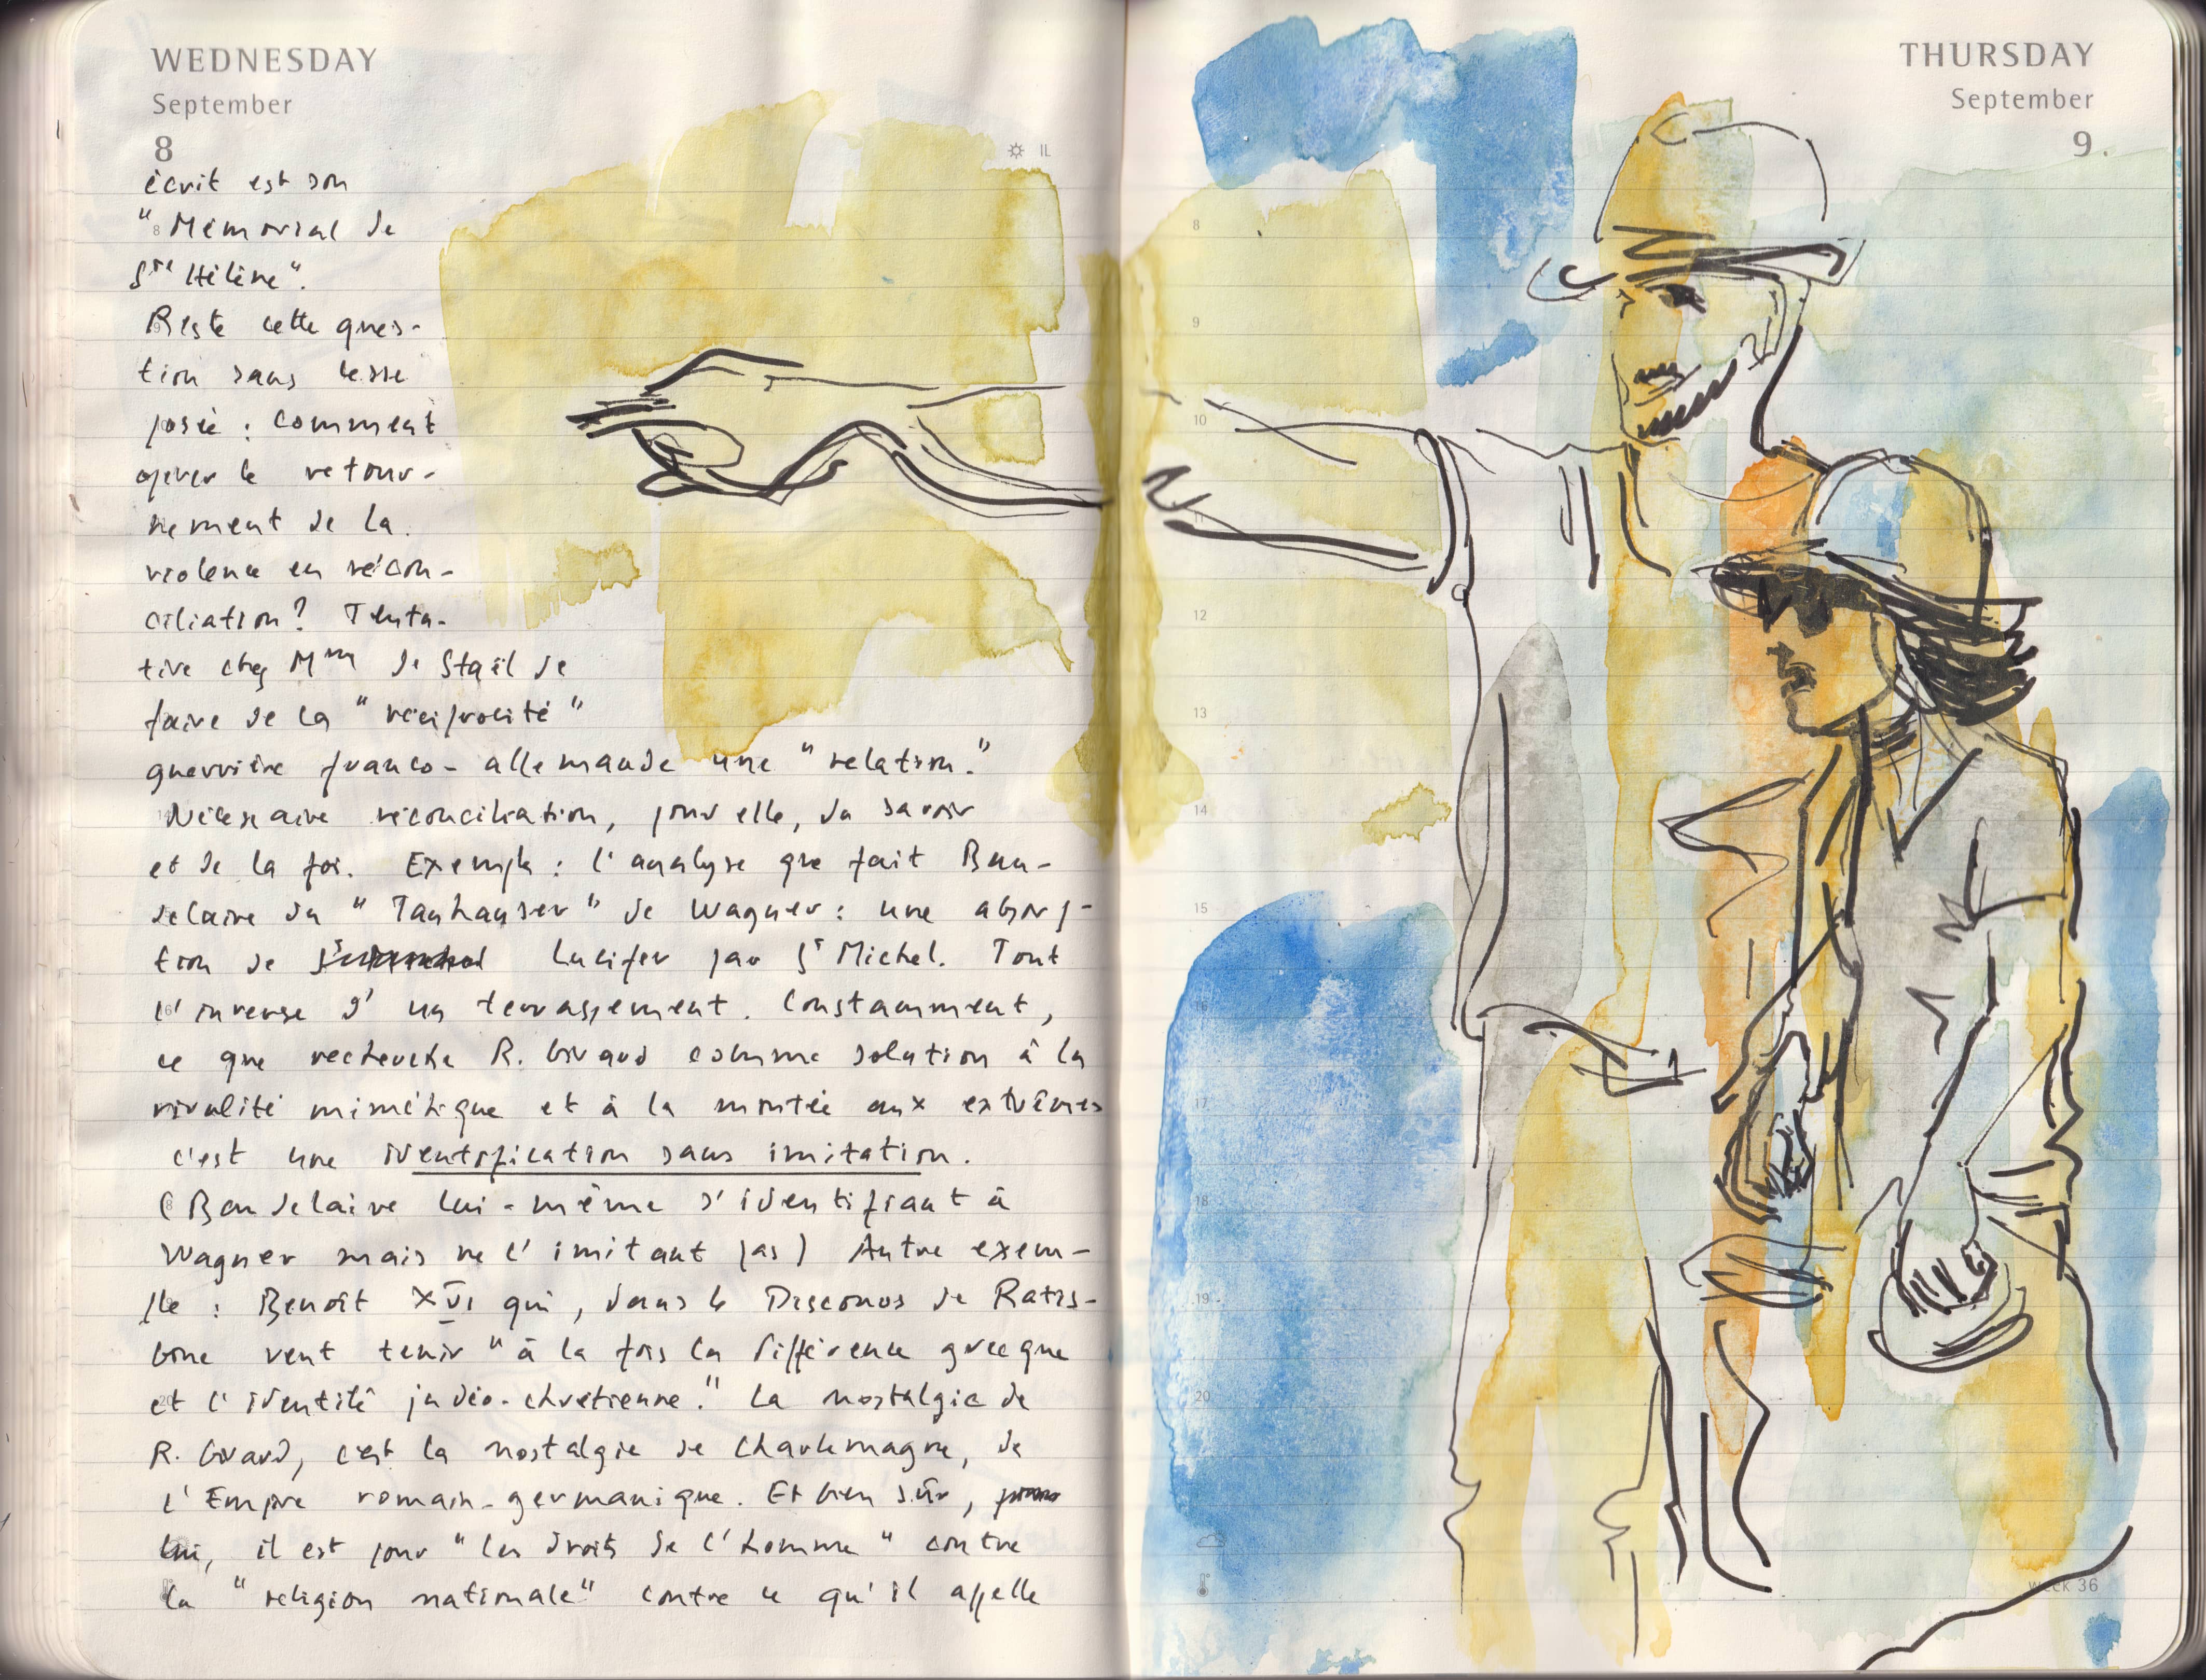 WEDNESDAY
September
8
IL
écrit est son
8
"Mémorial de
Ste Hélène".
Reste cette ques-
tion sans cesse
posée : comment
opérer le retour-
nement de la
violence en récon-
ciliation? Tenta-
tive chez Mme de Staël de
faire de la "réciprocité"
guerrière franco-allemande une "relation."
Nécessaire réconciliation, pour elle, du savoir
et de la foi. Exemple : l'analyse que fait Bau-
delaire du "Tanhauser" de Wagner : une absorp-
tion de Lucifer par St Michel. Tout
l'inverse d'un terrassement. Constamment,
ce que recherche R. Girard comme solution à la
rivalité mimétique et à la montée aux extrêmes
c'est une identification sans imitation.
(Baudelaire lui-même s'identifiant à
Wagner mais ne l'imitant pas) Autre exem-
ple : Benoît XVI qui, dans le Discours de Ratis-
bone veut tenir "à la fois la différence grecque
et l'identité judéo-chrétienne." La nostalgie de
R. Girard, c'est la nostalgie de Charlemagne, de
l'Empire romain-germanique. Et bien sûr,
lui, il est pour "les droits de l'homme" contre
la "religion nationale" contre ce qu'il appelle
THURSDAY
September
9.
8
9
10
11
12
13
14
15
16
17
18
19
20
week 36